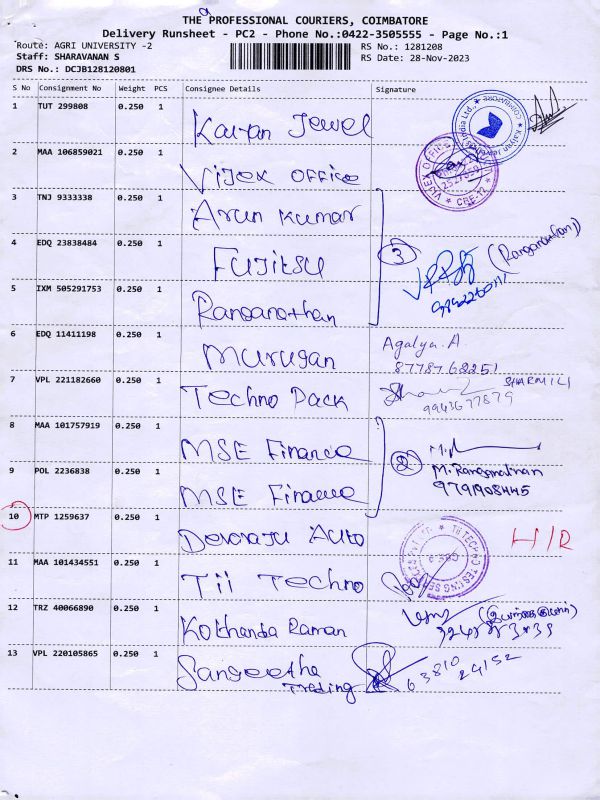 THE PROFESSIONAL COURIERS, COIMBATORE
Delivery Runsheet - PC2 - Phone No.:0422-3505555 - Page No.:1
Route: AGRI UNIVERSITY -2
RS No.: 1281208
Staff: SHARAVANAN S
RS Date: 28-Nov-2023
DRS No.: DCJB128120801
S No Consignment No Weight PCS Consignee Details Signature
1 TUT 299808 0.250 1 Kalyan Jewel
2 MAA 106859021 0.250 1 Vijex Office
3 TNJ 9333338 0.250 1 Arun Kumar
4 EDQ 23838484 0.250 1 Fujitsu 3 (Ranganathan)
5 IXM 505291753 0.250 1 Ranganathan
6 EDQ 11411198 0.250 1 Murugan Agalya.A
8778768251
7 VPL 221182660 0.250 1 Techno Pack SHARMILI
9943677879
8 MAA 101757919 0.250 1 MSE Finance
9 POL 2236838 0.250 1 MSE Finance 2 M. Ranganathan
9791908445
10 MTP 1259637 0.250 1 Devaraju Auto H/R
11 MAA 101434551 0.250 1 Tii Techno
12 TRZ 40066890 0.250 1 Kothanda Raman
13 VPL 220105865 0.250 1 Sangeetha
Trading 63810
24152